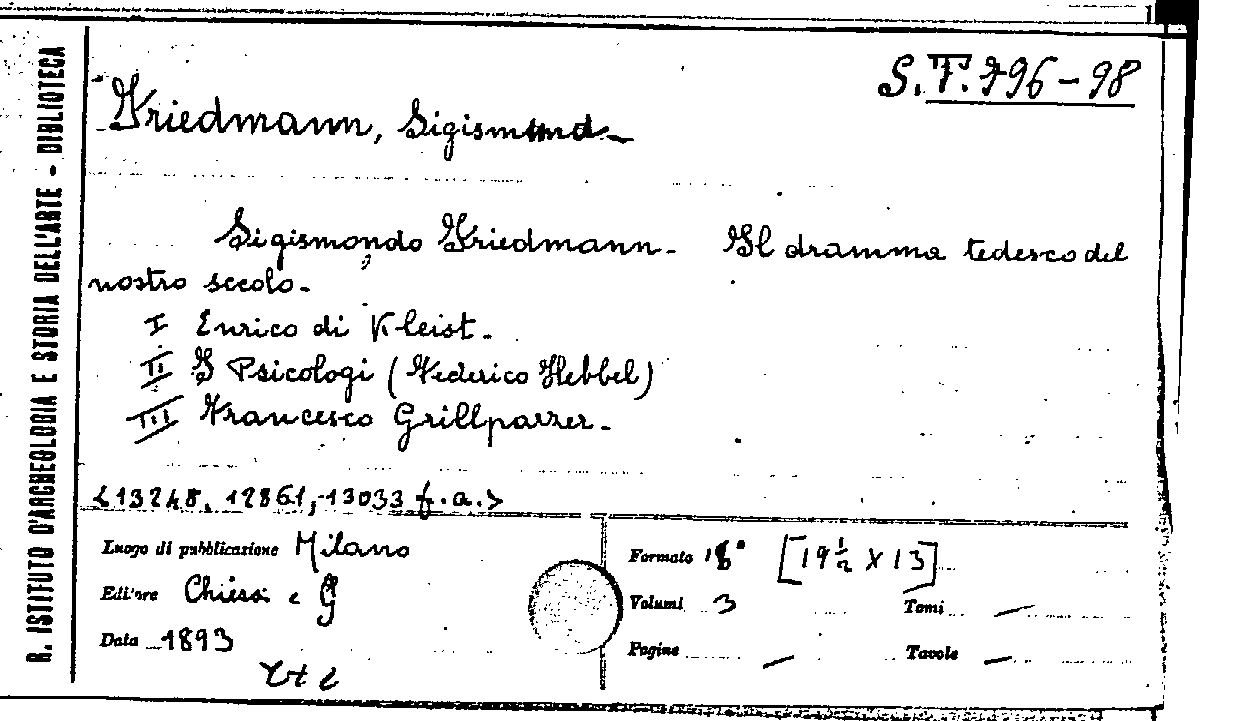 R. ISTITUTO D'ARCHEOLOGIA E STORIA DELL'ARTE - BIBLIOTECA
S.T. 796-98
Friedmann, Sigismund -
Sigismondo Friedmann - Il dramma tedesco del
nostro secolo -
I Enrico di Kleist -
II I Psicologi (Federico Hebbel)
III Francesco Grillparzer -
<13248, 12861, 13033 f.a.>
Luogo di pubblicazione Milano
Editore Chiesa e G
Data 1893
Formato 16° [19 ½ X 13]
Volumi 3 Tomi —
Pagine — Tavole —